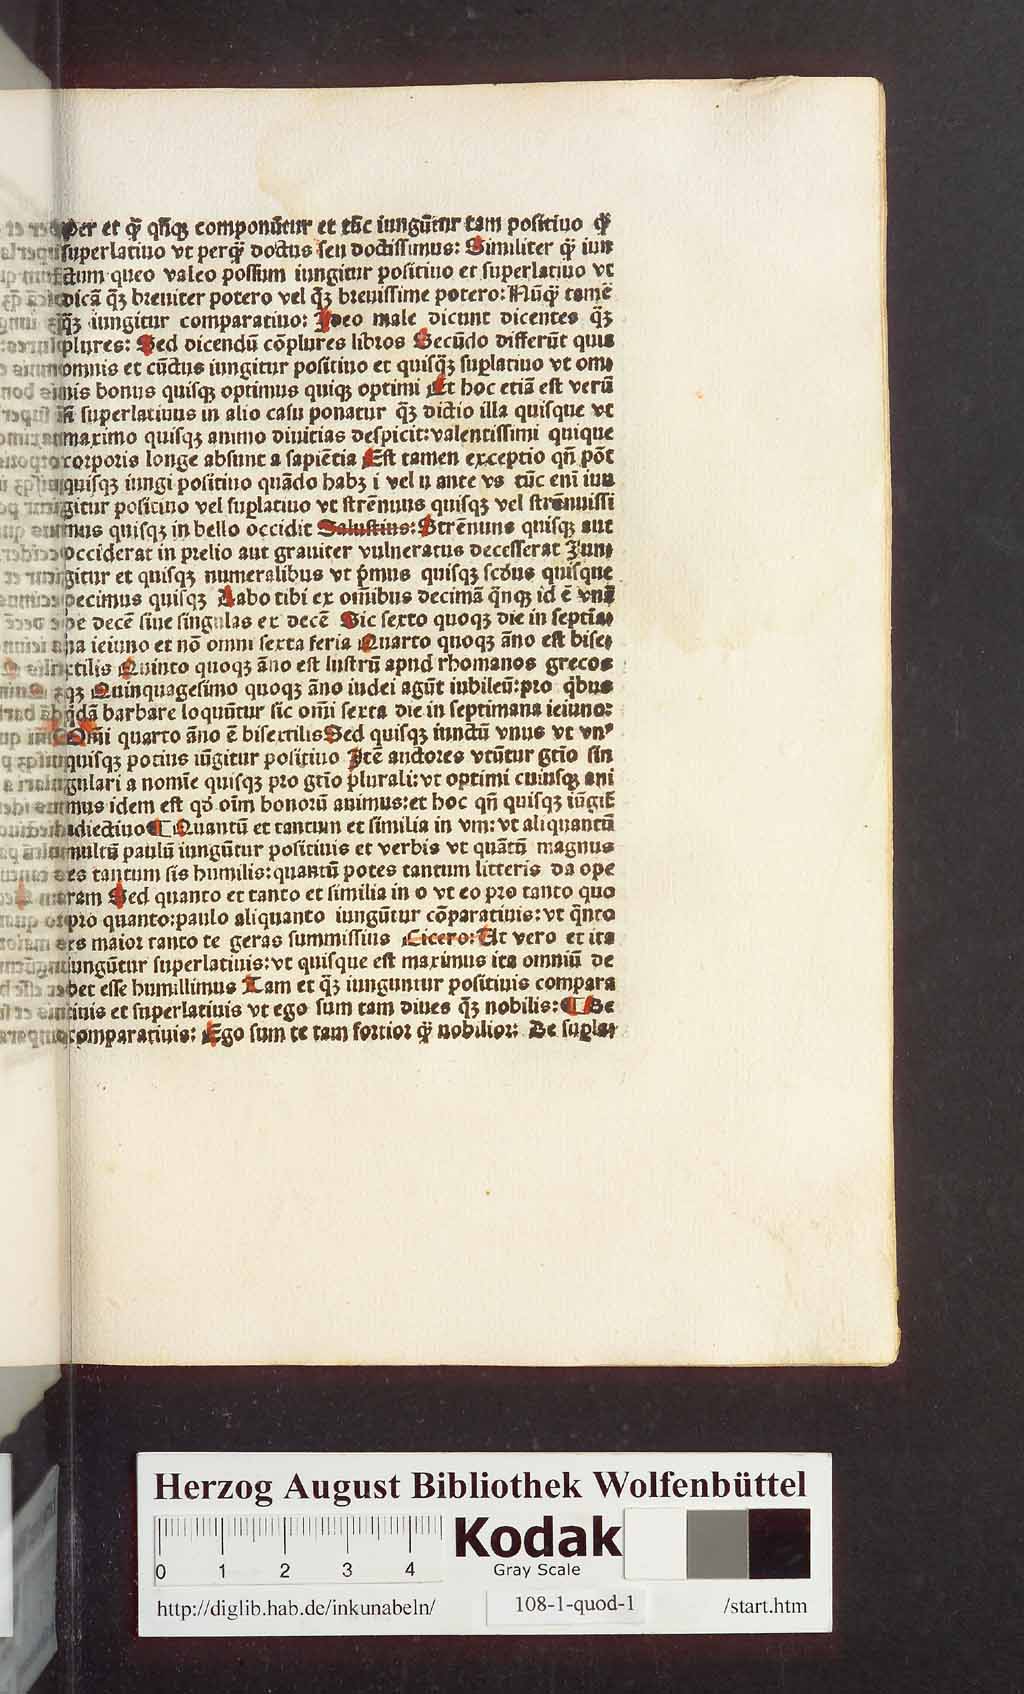 per et qͣ qñqꝫ componūtur et tūc iungūtur tam positiuo qͣ
superlatiuo vt perqͣ doctus seu doctissimus: Similiter qͣ iun
ctum queo valeo possum iungitur positiuo et superlatiuo vt
dicā q̄ꝫ breuiter potero vel q̄ꝫ breuissime potero: Nūqͣ tamē
q̄ꝫ iungitur comparatiuo: Ideo male dicunt dicentes q̄ꝫ
plures: Sed dicendū cōplures libros Secūdo differūt quis
omnis et cūctus iungitur positiuo et quisqꝫ suplatiuo vt om
nis bonus quisqꝫ optimus quiqꝫ optimi Et hoc etiā est verū
superlatiuus in alio casu ponatur q̄ꝫ dictio illa quisque vt
maximo quisqꝫ animo diuitias despicit: valentissimi quique
corporis longe absunt a sapiētia Est tamen exceptio qñ pōt
quisqꝫ iungi positiuo quādo habꝫ i vel u ante vs tūc eni iun
gitur positiuo vel suplatiuo vt strēnuus quisqꝫ vel strēnuissi
mus quisqꝫ in bello occidit Salustius: Strēnuus quisqꝫ aut
occiderat in prelio aut grauiter vulneratus decesserat Iun
gitur et quisqꝫ numeralibus vt p̄mus quisqꝫ scd̄us quisque
decimus quisqꝫ Dabo tibi ex oīnibus decimā q̄nqꝫ id ē vnā
de decē siue singulas ex decē Sic sexto quoqꝫ die in septia
na ieiuno et nō omni sexta feria Quarto quoqꝫ āno est bise
ctilis Quinto quoqꝫ āno est lustrū apud rhomanos grecos
qꝫ Quinquagesimo quoqꝫ āno iudei agūt iubileū: pro q̄bus
q̄dā barbare loquūtur sic oīni sexta die in septimana ieiuno:
Oīni quarto āno ē bisextilis Sed quisqꝫ iunctū vnus vt vnꝰ
quisqꝫ potius iūgitur positiuo Itē auctores vtūtur gtīo sin
gulari a nomīe quisqꝫ pro gtīo plurali: vt optimi cuiusqꝫ ani
mus idem est qd̄ oīm bonorū animus: et hoc qñ quisqꝫ iūgit̄
adiectiuo ¶ Quantū et tantum et similia in vm: vt aliquantū
multū paulū iungūtur positiuis et verbis vt quātū magnus
es tantum sis humilis: quantū potes tantum litteris da ope
ram Sed quanto et tanto et similia in o vt eo pro tanto quo
pro quanto: paulo aliquanto iungūtur cōparatiuis: vt q̄nto
es maior tanto te geras summissius Cicero: At vero et ita
iungūtur superlatiuis: vt quisque est maximus ita omniū de
bet esse humillimus Tam et q̄ꝫ iunguntur positiuis compara
tiuis et superlatiuis vt ego sum tam diues q̄ꝫ nobilis: ¶ De
comparatiuis: Ego sum te tam fortior qͣ nobilior: De suplat
Herzog August Bibliothek Wolfenbüttel
0 1 2 3 4
Kodak
Gray Scale
http://diglib.hab.de/inkunabeln/ 108-1-quod-1 /start.htm